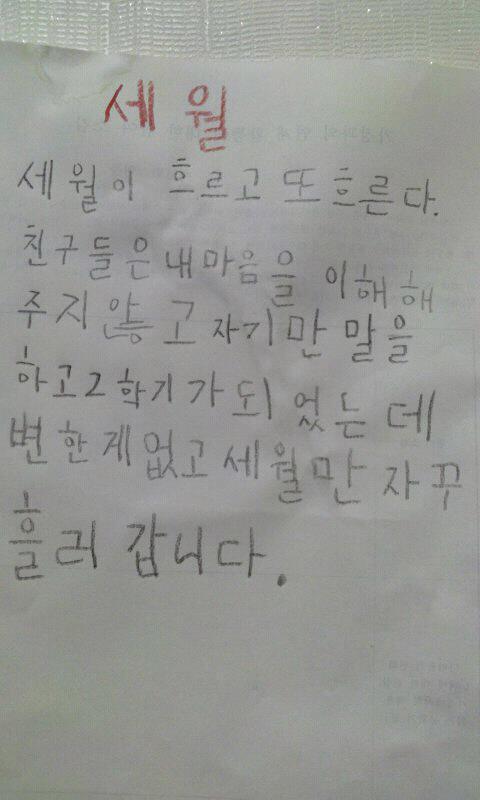 세월
세월이 흐르고 또 흐른다.
친구들은 내마음을 이해해
주지 않고 자기만 말을
하고 2학기가 되었는데
변한게 없고 세월만 자꾸
흘러 갑니다.